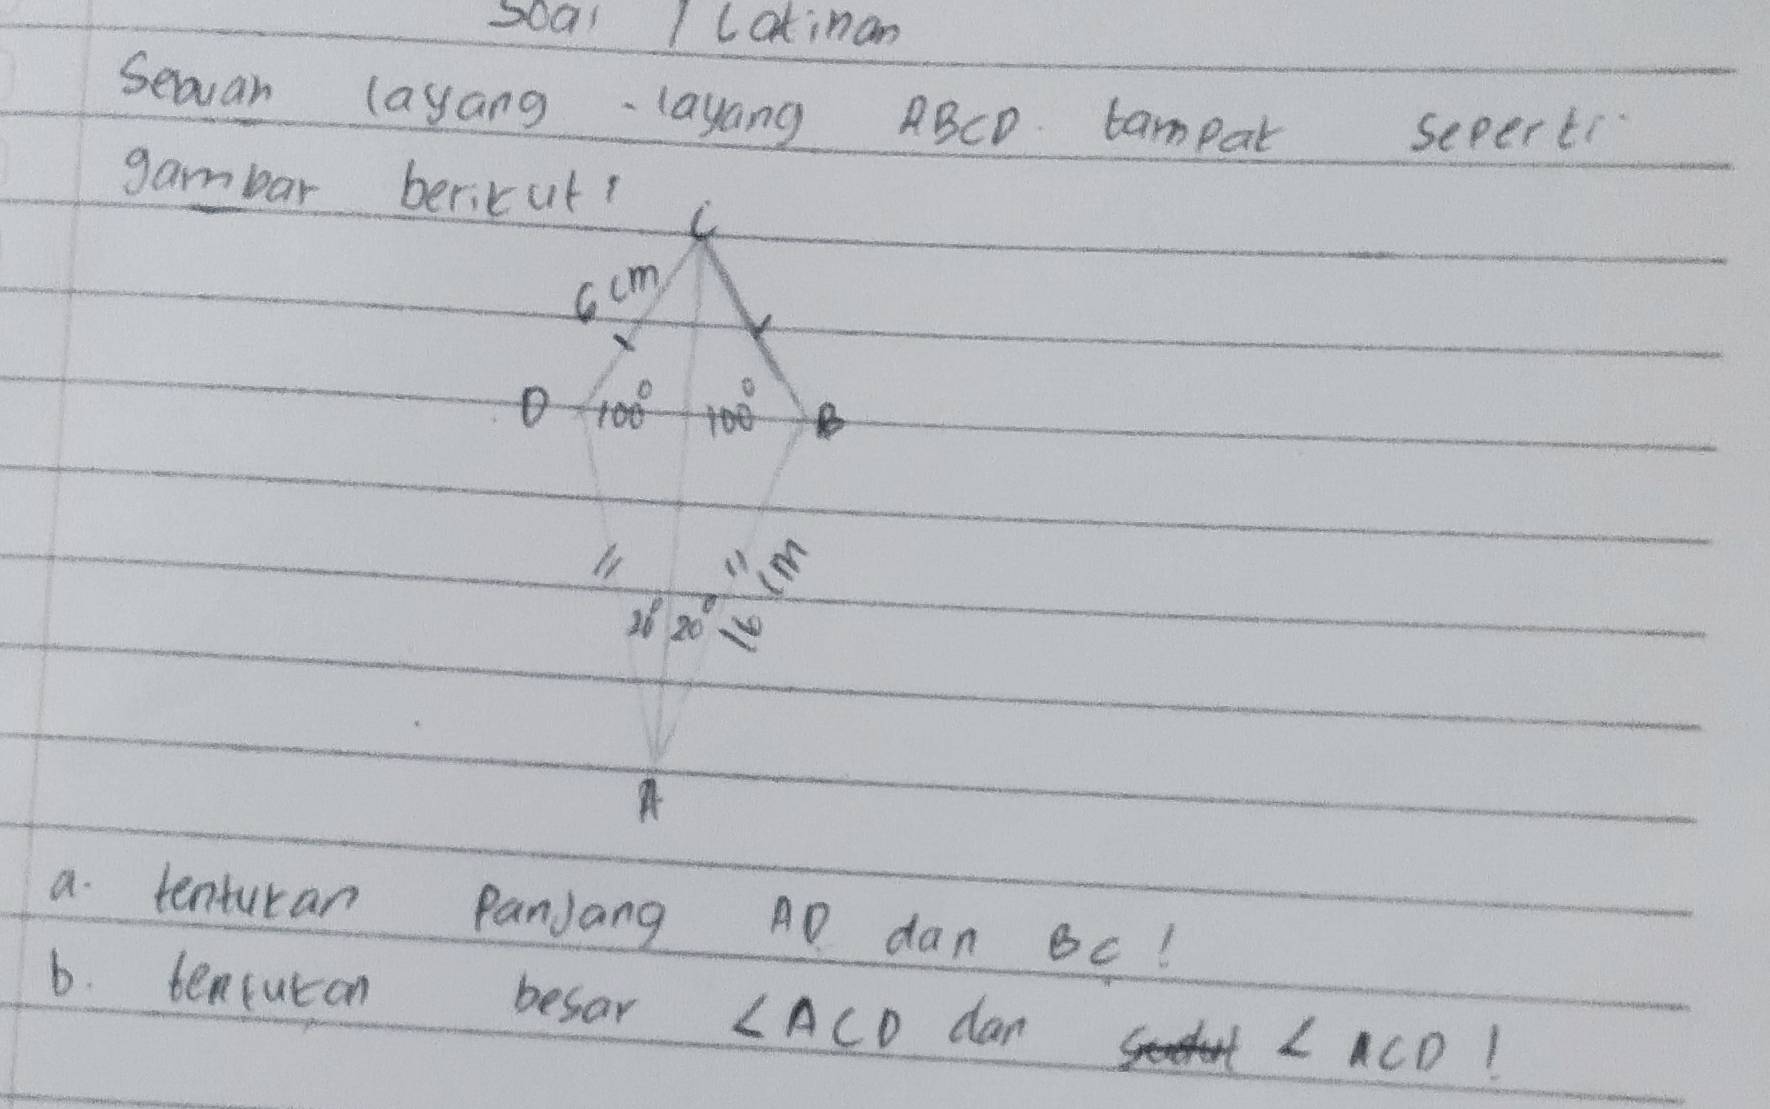 Soal / Latihan
Sebuah layang-layang ABCD tampak seperti
gambar berikut!
C
6 cm
D 100° 100° B
20° 20° 16 cm
A
a. tentukan Panjang AD dan BC!
b. tentukan besar ∠ACD dan ∠ACD!